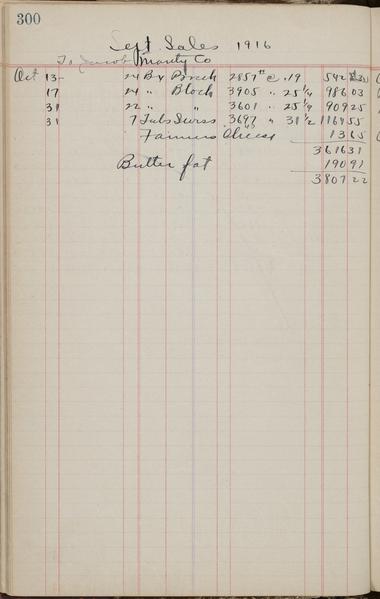 300
Sept. Sales 1916
To Jacob Marty Co
Oct 13- 24 Bx Brick 2857 # @ .19 542 83
17 24 " Block 3905 " 25 1/4 986 03
31 22 " " 3601 " 25 1/4 909 25
31 7 Tubs Swiss 3697 " 31 1/2 1164 55
Farmers Cheese 13 65
3616 31
Butter fat 190 91
3807 22